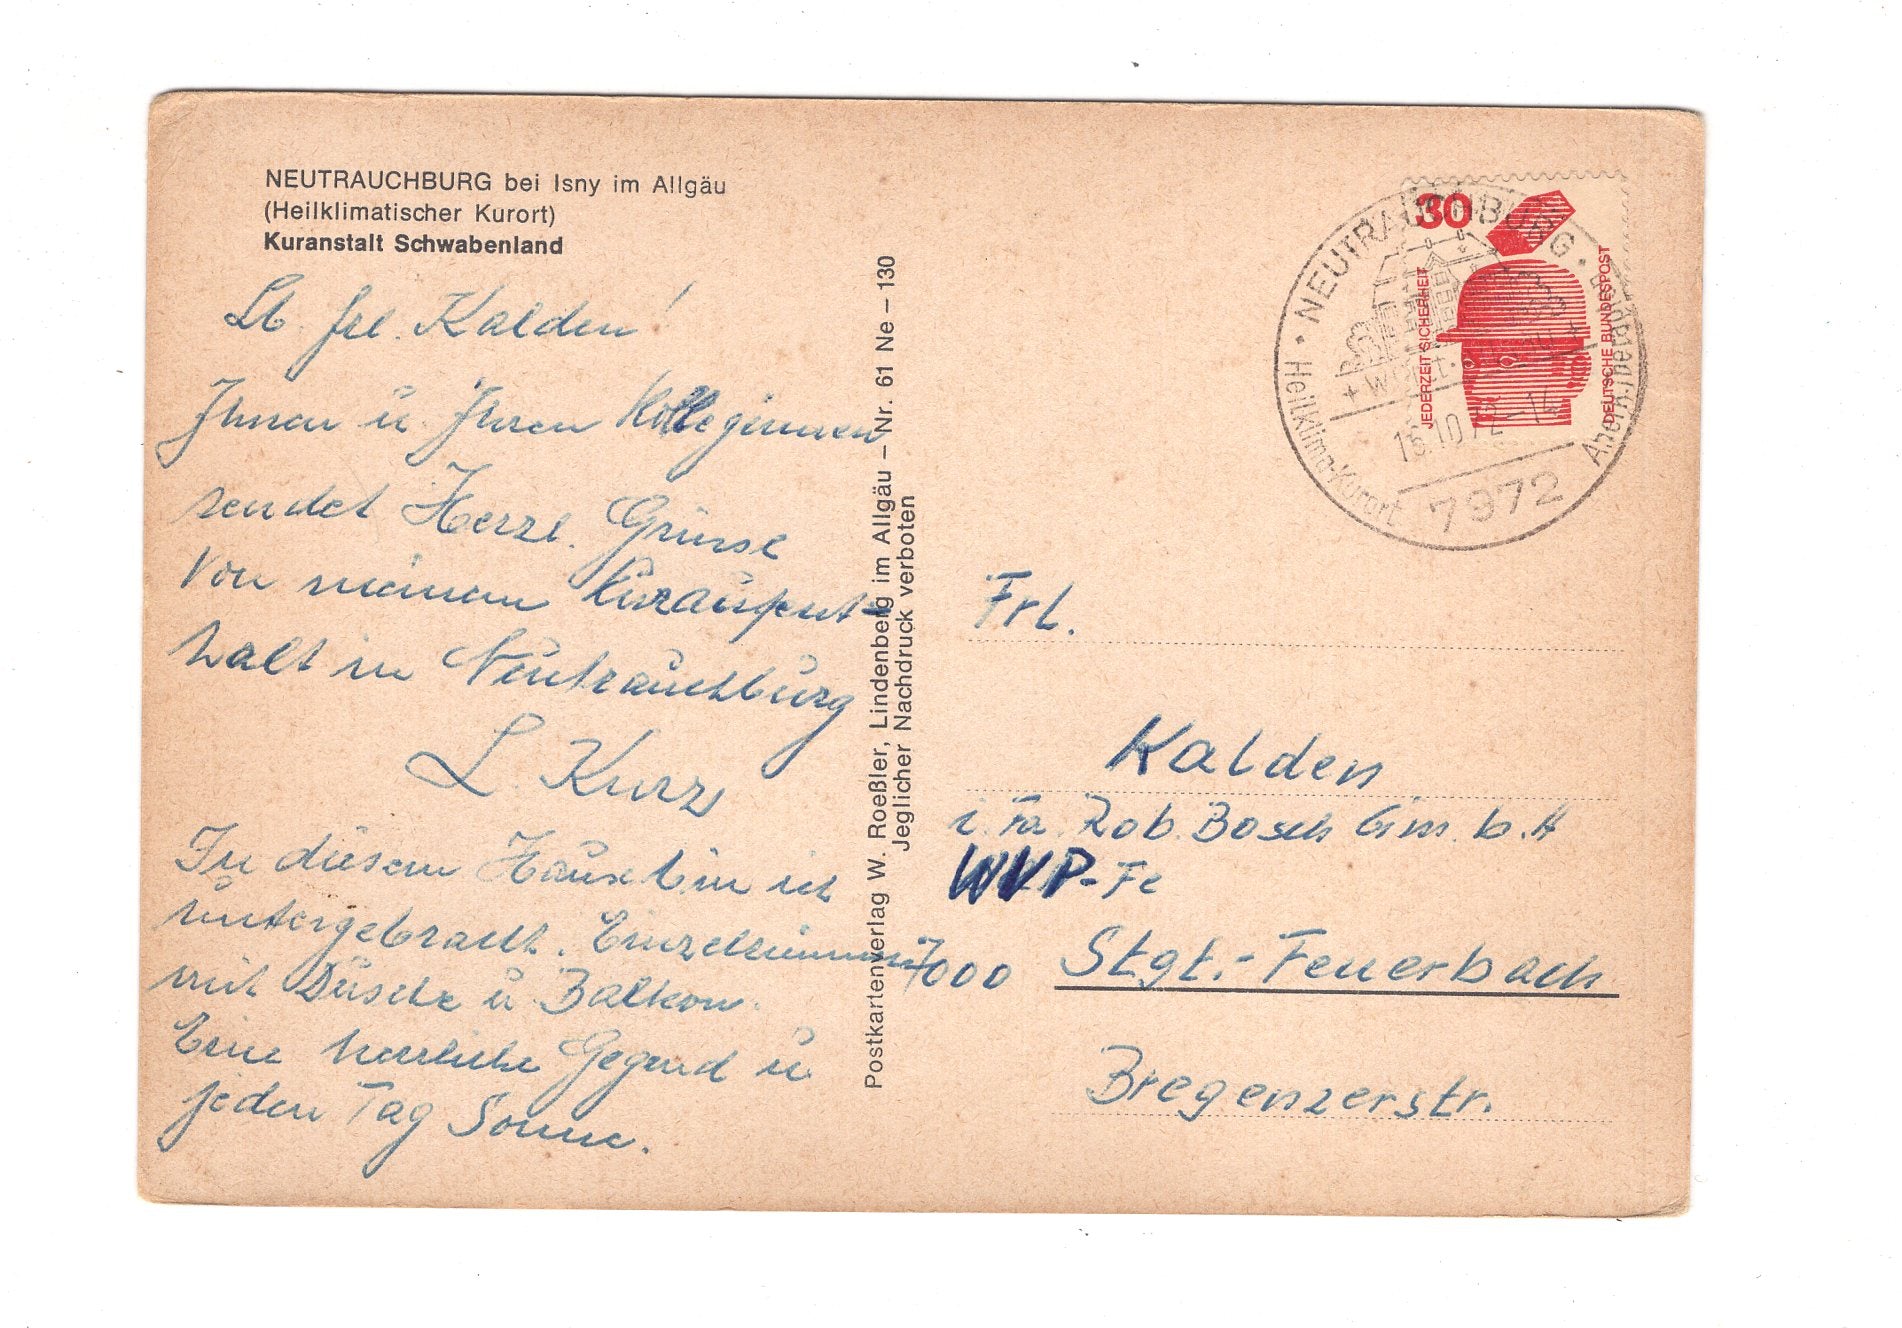 NEUTRAUCHBURG bei Isny im Allgäu
(Heilklimatischer Kurort)
Kuranstalt Schwabenland
Lb. Frl. Kalden!
Ihnen u. Ihren Kolleginnen
sendet Herzl. Grüsse
von meinem Kuraufent-
halt in Neutrauchburg
L. Kurz
In diesem Hause bin ich
untergebracht. Einzelzimmer
mit Dusche u Balkon.
Eine herrliche Gegend u
jeden Tag Sonne.
Postkartenverlag W. Roeßler, Lindenberg im Allgäu – Nr. 61 Ne – 130
Jeglicher Nachdruck verboten
30
JEDERZEIT SICHERHEIT
DEUTSCHE BUNDESPOST
NEUTRAUCHBURG
Heilklima-Kurort
16.10.72-14
7972
Frl.
Kalden
i. Fa. Rob. Bosch G.m.b.H
WVP-Fe
7000 Stgt.-Feuerbach
Bregenzerstr.